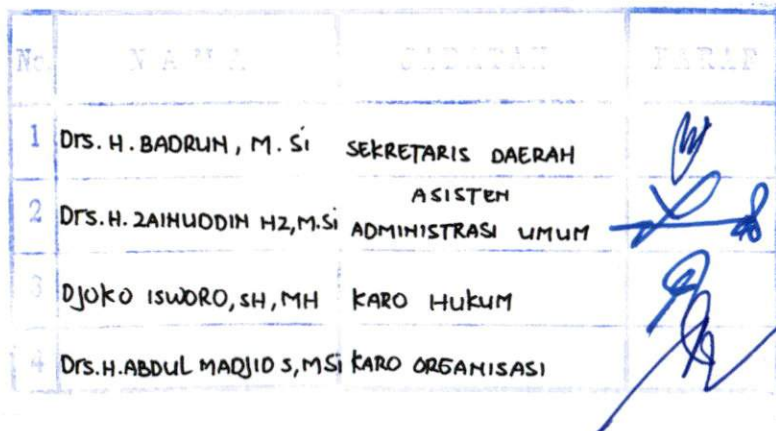 No. NAMA JABATAN PARAF
1 Drs. H. BADRUN, M. Si SEKRETARIS DAERAH
2 Drs. H. ZAINUDDIN HZ, M.Si ASISTEN
ADMINISTRASI UMUM
3 DJOKO ISWORO, SH, MH KARO HUKUM
4 Drs. H. ABDUL MADJID S, MSi KARO ORGANISASI